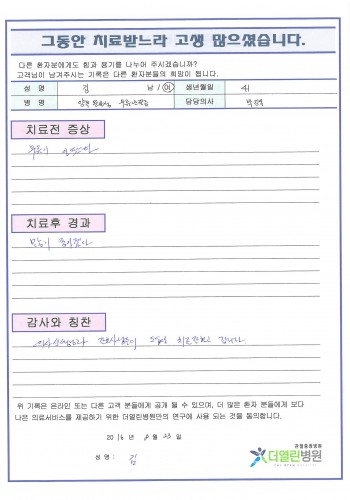 그동안 치료받느라 고생 많으셨습니다.
다른 환자분에게도 힘과 용기를 나누어 주시겠습니까?
고객님이 남겨주시는 기록은 다른 환자분들의 희망이 됩니다.
성 명 김 남 / 여 생년월일
병 명 담당의사
치료전 증상
치료후 경과
많이 좋아졌다
감사와 칭찬
위 기록은 온라인 또는 다른 고객 분들에게 공개 될 수 있으며, 더 많은 환자 분들에게 보다
나은 의료서비스를 제공하기 위한 더열린병원만의 연구에 사용 되는 것을 동의합니다.
2016 년 8 월 23 일
성 명 : 김
관절중점병원
더열린병원